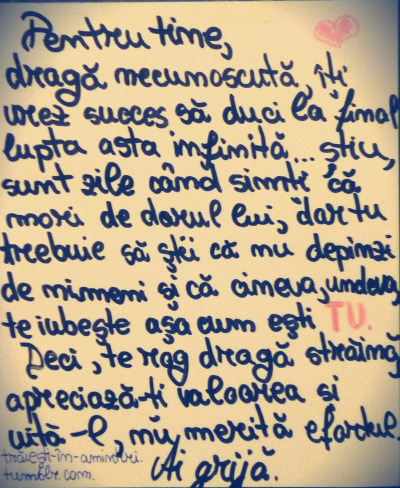 Pentru tine,
dragă necunoscută, îți
urez succes să duci la final
lupta asta infinită... știu,
sunt zile când simti că
mori de dorul lui, dar tu
trebuie să știi că nu depinzi
de nimeni și că cineva, undeva,
te iubește așa cum ești TU.
Deci, te rog dragă străină
apreciază-ti valoarea și
uită-l, nu merită efortul.
Ai grijă.
trăiești-în-amintiri.
tumblr.com.